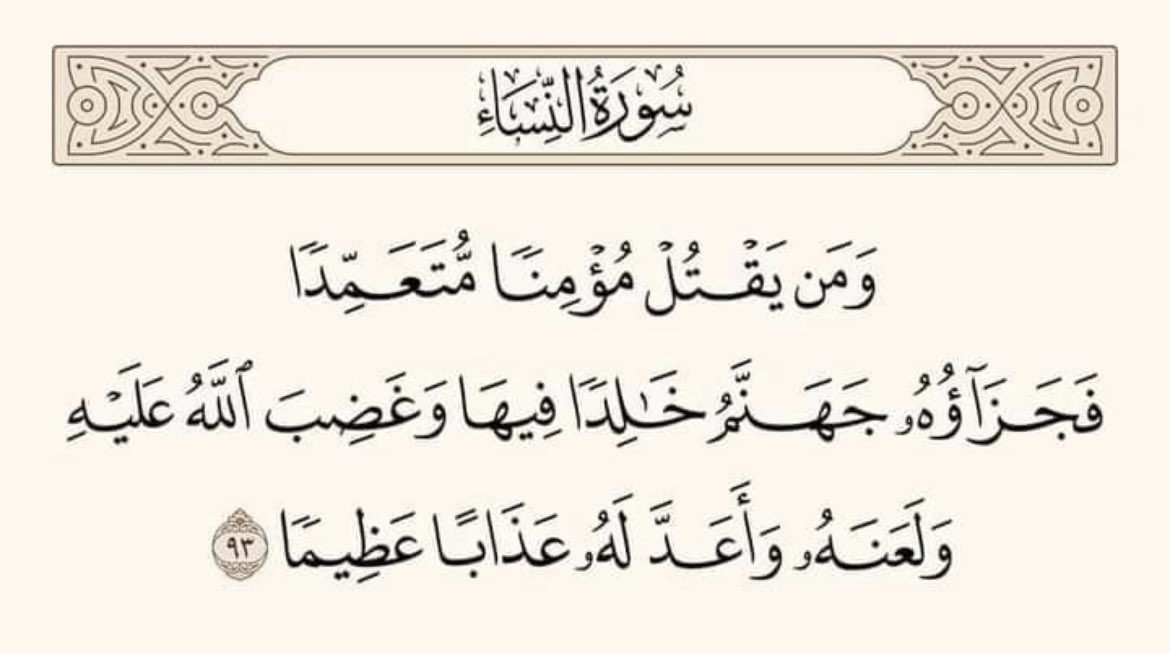 سُورَةُ النِّسَاءِ
وَمَن يَقۡتُلۡ مُؤۡمِنٗا مُّتَعَمِّدٗا
فَجَزَآؤُهُۥ جَهَنَّمُ خَٰلِدٗا فِيهَا وَغَضِبَ ٱللَّهُ عَلَيۡهِ
وَلَعَنَهُۥ وَأَعَدَّ لَهُۥ عَذَابًا عَظِيمٗا ٩٣